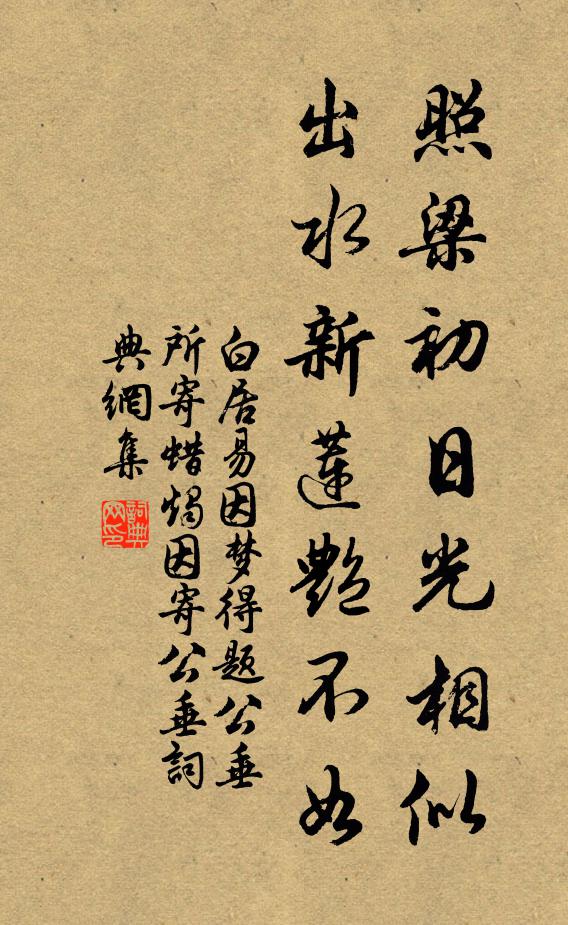 照梁初日光相似
出水新蓮艷不如
白居易因梦得题公垂
所寄蜡烛因寄公垂詞
典網集
詞典
网印